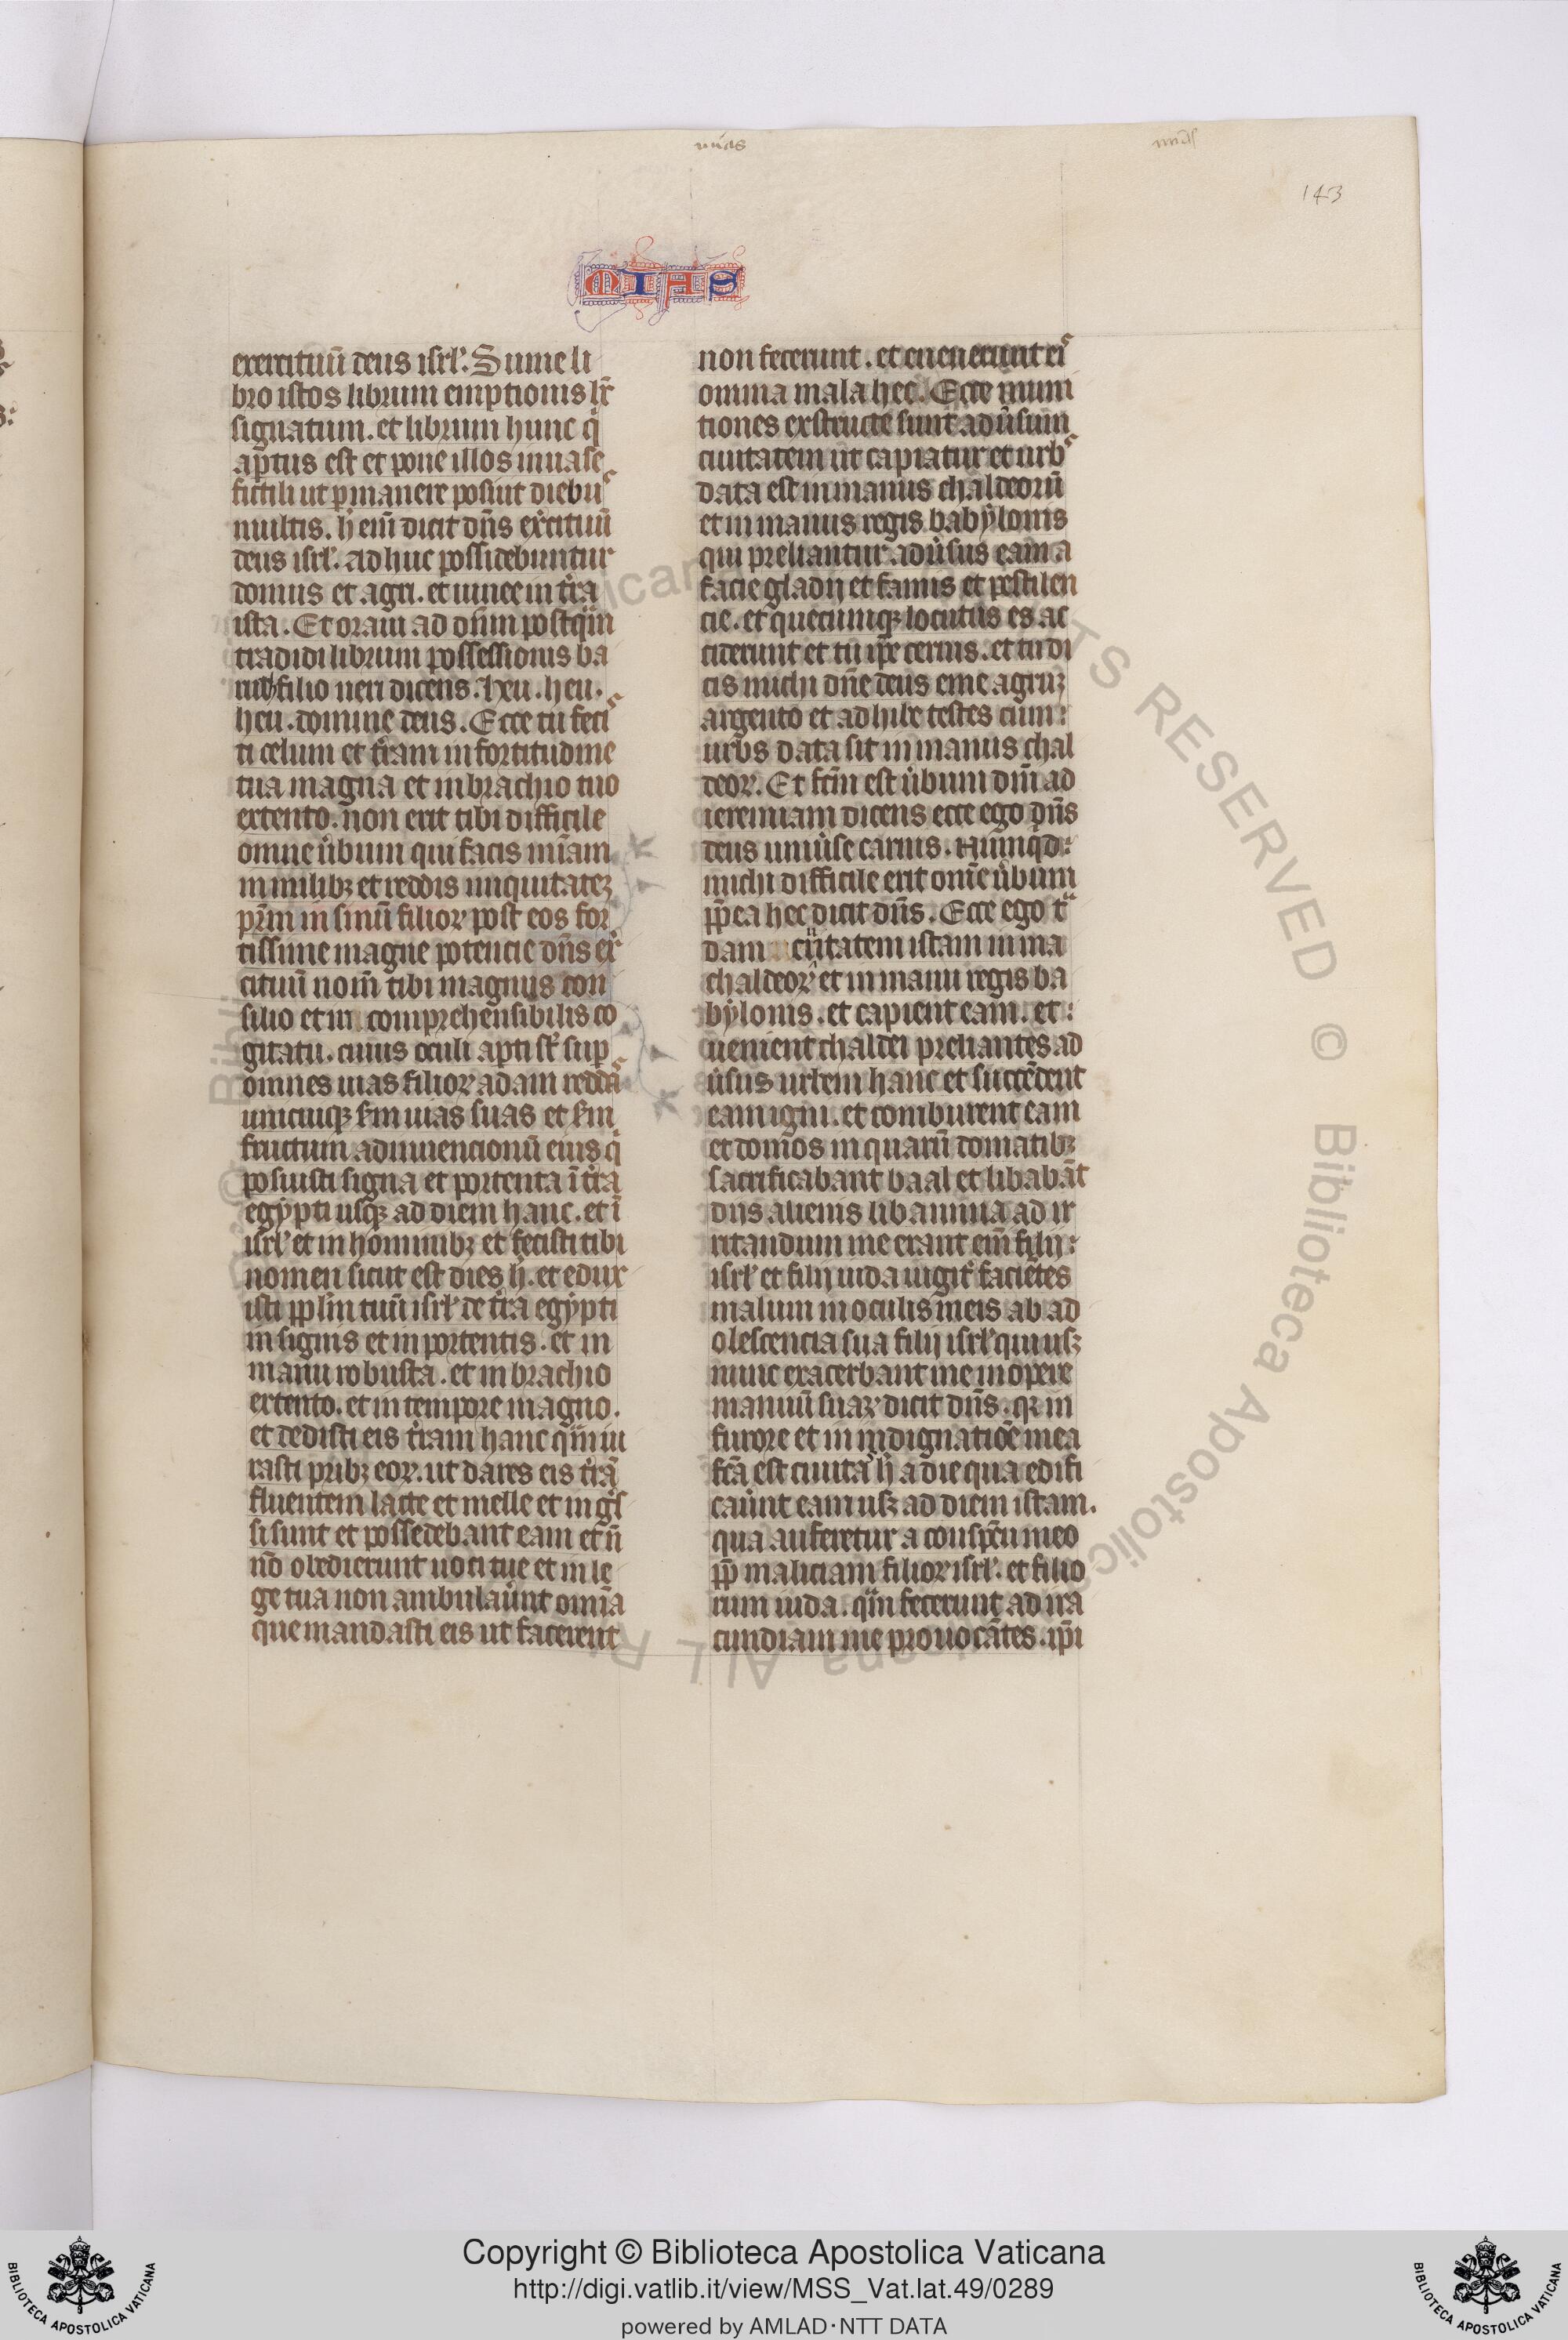 mias
143
MIAS
exercituū deus isrl'. Sume li
bro istos librum emptionis hc̄
signatum. et librum hunc q̇
aptus est et pone illos in uase
fictili ut pmanere possint diebus
multis. h̄ eni dicit dn̄s ex̄cituū
deus isrl'. adhuc possidebuntur
domus et agri. et uinee in tr̄a
ista. Et oraui ad dn̄m postq̄m
tradidi librum possessionis ba
ruch filio neri dicens. Heu. heu.
heu. domine deus. Ecce tu fecis
ti celum et tr̄am in fortitudine
tua magna et in brachio tuo
extento. non erit tibi difficile
omne ůbum qui facis mīam
in milibꝫ et reddis iniquitateꝫ
pr̄m in sinū filioꝝ post eos for
tissime magne potencie dn̄s ex̄
cituū nom̄ tibi magnus con
silio et in comprehensibilis co
gitatu. cuius oculi apti st̄ sup
omnes uias filioꝝ adam reddās
unicuiqꝫ scd̄m uias suas et scd̄m
fructum adinuencionū eius q̇
posuisti signa et portenta ī tr̄a
egypti usqꝫ ad diem hanc. et ī
isrl' et in hominibꝫ et fecisti tibi
nomen sicut est dies h̄. et edux
isti ppl'm tuū isrl' de tr̄a egypti
in signis et in portentis. et in
manu robusta. et in brachio
extento. et in tempore magno.
et dedisti eis tr̄am hanc q̄m iu
rasti prībꝫ eoꝝ. ut dares eis tr̄ā
fluentem lacte et melle et ingŝ
si sunt et possedebant eam et n̄
nō obedierunt uoci tue et in le
ge tua non ambulaůnt omīa
que mandasti eis ut facerent
non fecerunt. et euenerunt eis
omnia mala hec. Ecce muni
tiones exstructe sunt adůsum
ciuitatem ut capiatur et urbs
data est in manus chaldeorū
et in manus regis babylonis
qui preliantur adůsus eam a
facie gladij et famis et pestilen
cie. et quecumqꝫ locutus es ac
ciderunt et tu ipe cernis. et tu di
cis michi dn̄e deus eme agruꝫ
argento et adhibe testes cum:
urbs data sit in manus chal
deoꝝ. Et fc̄m est ůbum dn̄i ad
ieremiam dicens ecce ego dn̄s
deus uniůse carnis. Numqd:
michi difficile erit omē ůbum
pp̄ ea hec dicit dn̄s. Ecce ego tͣ
dam ciuitatem istam in ma
chaldeoꝝ et in manu regis ba
bylonis. et capient eam. et:
uenient chaldei preliantes ad
ůsus urbem hanc et succēdent
eam igni. et comburent eam
et domos in quarū domatibꝫ
sacrificabant baal et libabāt
diis alienis libamina ad ir
ritandum me erant eni filij:
isrl' et filij iuda iugit' faciētes
malum in oculis meis ab ad
olescencia sua filij isrl' qui usqꝫ
nunc exacerbant me in opere
manuū suaꝝ dicit dn̄s. qꝛ in
furore et in indignatiōe mea
fc̄ā est ciuitas h̄ a die qua edifi
caůnt eam usqꝫ ad diem istam.
qua auferetur a conspc̄u meo
pp̄ maliciam filioꝝ isrl'. et filio
rum iuda. q̄m fecerunt ad ira
cundiam me prouocātes. ip̄i
Copyright © Biblioteca Apostolica Vaticana
http://digi.vatlib.it/view/MSS_Vat.lat.49/0289
powered by AMLAD·NTT DATA
BIBLIOTECA APOSTOLICA VATICANA
BIBLIOTECA APOSTOLICA VATICANA